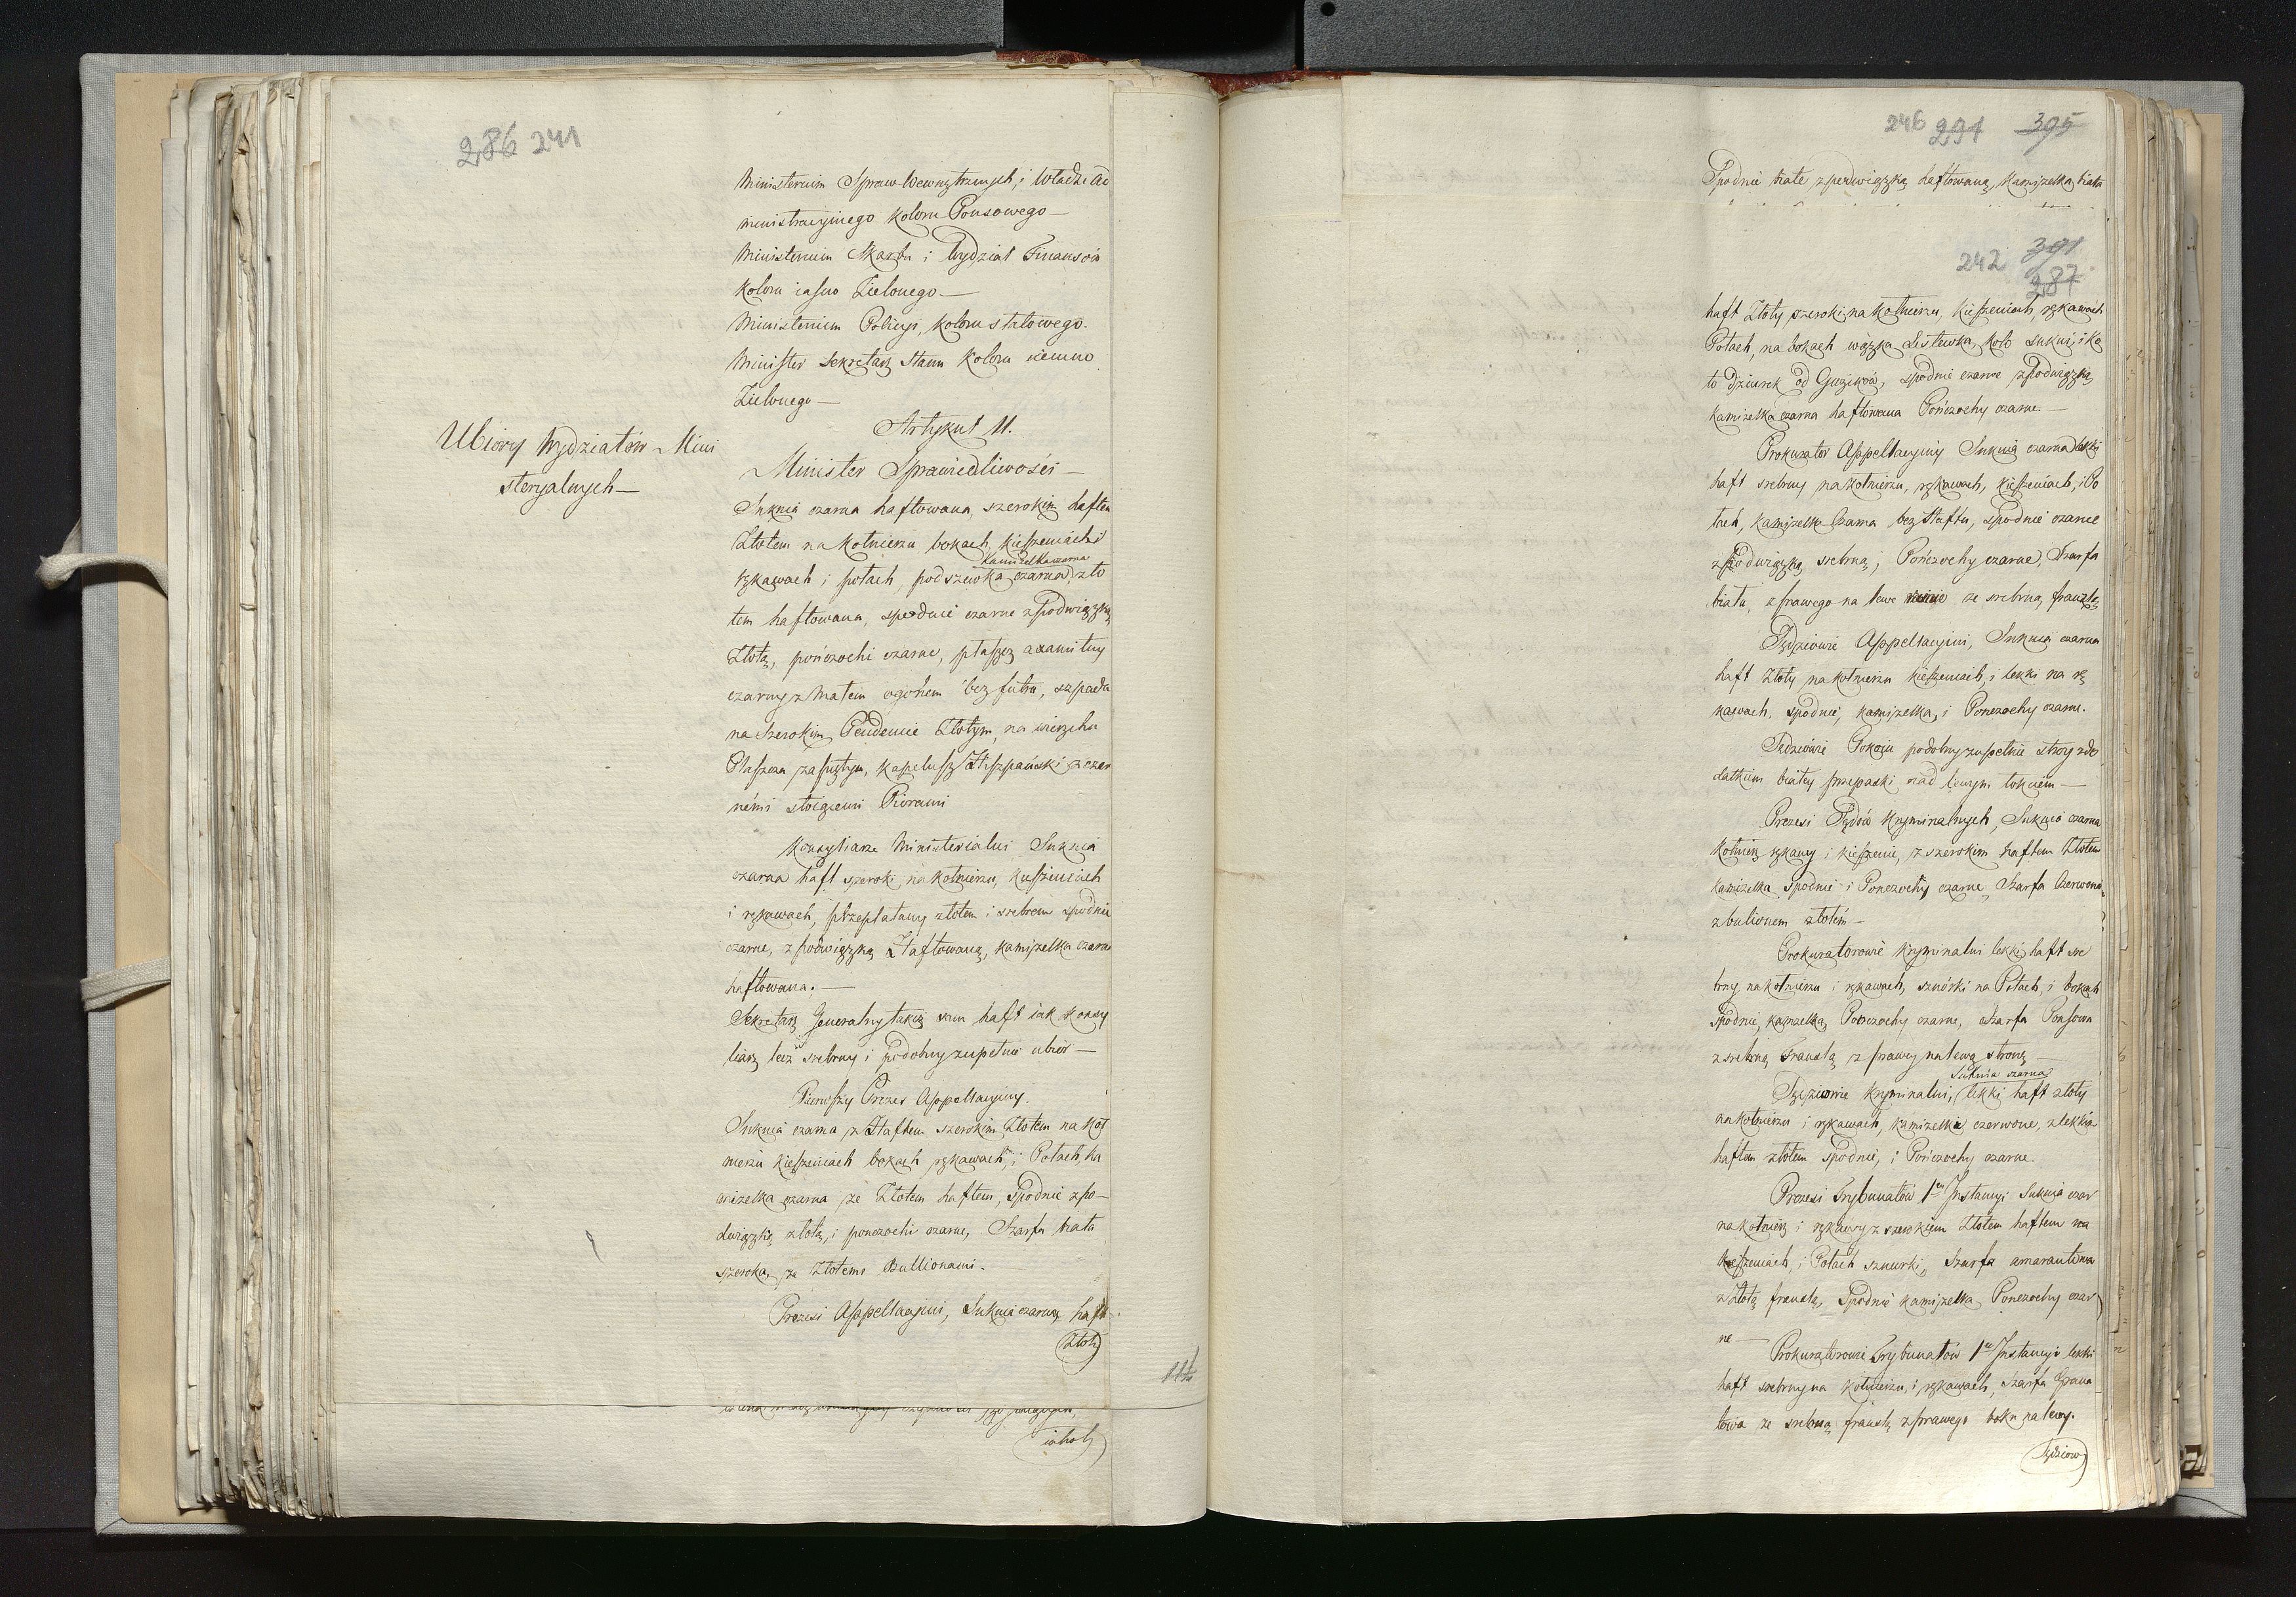 286 241
Ministerium Spraw Wewnętrznych, i Władz Ad
ministracyinego koloru Ponsowego —
Ministerium Skarbu i Wydział Finansów
koloru iasno Zielonego —
Ministerium Policyi, koloru stalowego.
Minister Sekretarz Stanu koloru ciemno
Zielonego —
Artykuł 11.
Ubiory Wydziałów Mini
steryalnych —
Minister Sprawiedliwości —
Suknia czarna haftowana, szerokim haftem
Złotem na kołnierzu bokach, kieszeniach i
kamizelka czarna
rękawach i połach, podszewka czarna zło
tem haftowana, spodnie czarne z podwiązką
Złotą, pończochi czarne, płaszcz axamitny
czarny z małem ogonem bez futra, szpada
na szerokim Pendencie Złotym, na wierzchu
Płaszcza zapiętym, kapelusz Hiszpański z czar
némi stoiącemi Piórami
Konsyliarze Ministerialni Suknia
czarna haft szeroki na kołnierzu, kieszeniach
i rękawach, przeplatany złotem i srebrem spodnie
czarne, z podwiązką Haftowaną, kamizelka czarna
haftowana. —
Sekretarz Generalny takiż sam haft iak Konsy
liarz lecz srebrny i podobny zupełnie ubiór —
Pierwszy Prezes Appellacyiny.
Suknia czarna z Haftem szerokim Złotem na koł
nierzu kieszeniach bokach rękawach, i Połach, ka
mizelka czarna ze Złotem haftem, Spodnie z po-
dwiązką złotą, i ponczochi czarne, Szarfa biała
szeroka, ze Złotemi Bullionami.
Prezesi Appellacyini, Suknia czarna, haft
Złoty
114
246 291 395
Spodnie białe z podwiązką haftowaną, Kamizelka biała
242 391
287
haft Złoty szeroki na kołnierzu, kieszeniach, rękawach
Połach, na bokach wązka Listewka, koło sukni, i ko
ło dziurek od Guzików, spodnie czarne z Podwiązką
kamizelka czarna haftowana Pończochy czarne. —
Prokurator Appellacyiny Suknia czarna lekki
haft srebrny na kołnierzu, rękawach, kieszeniach, i Po
łach, kamizelka Czarna bez Haftu, spodnie czarne
z Podwiązką srebrną, Pończochy czarne, Szarfa
biała, z prawego na lewe ramie ze srebrną franzlą
Sędziowie Appellacyini, Suknia czarna
haft Złoty na kołnierzu kieszeniach, i lekki na rę
kawach, spodnie, kamizelka, i Ponczochy czarne.
Sędziowie Pokoiu podobny zupełnie stroy z do
datkiem białey przepaski nad lewym łokciem —
Prezesi Sądów Kryminalnych, Suknia czarna
kołnierz rękawy i kieszenie, z szerokim haftem Złotem
kamizelka spodnie i Ponczochy czarne, Szarfa Czerwona
z bulionem złotém —
Prokuratorowie Kryminalni lekki haft sre
brny na kołnierzu i rękawach, sznórki na Połach, i bokach
Spodnie, kamizelka, Ponczochy czarne, Szarfa Ponsowa
z srebrną Franzlą z prawey na lewą stronę —
Suknia czarna
Sędziowie Kryminalni, lekki haft złoty
na kołnierzu i rękawach, kamizelka czerwone, z lekkim
haftem złotem Spodnie, i Pończochy czarne.
Prezesi Trybunałów 1ey Instancyi Suknia czar
na kołnierz i rękawy z szerokiem Złotem haftem na
kieszeniach, i Połach sznurki, Szarfa amarantowa
z Złotą franzlą, Spodnie kamizelka, Ponczochy czar
ne —
Prokuratorowie Trybunałów 1ey Instancyi lekki
haft srebrny na kołnierzu, i rękawach, Szarfa Grana
towa ze srebrną franzlą z prawego boku na lewy.
Sędziow